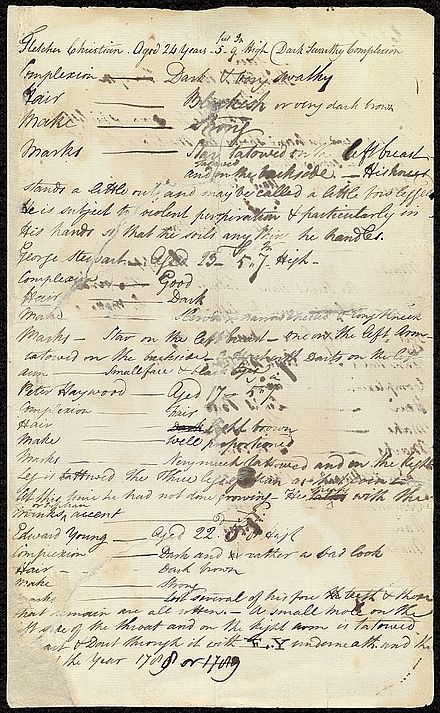 Fletcher Christian. Aged 24 Years 5. 9 High Dark Swarthy Complexion
Complexion — Dark & very swarthy
Hair — Blackish or very dark brown
Make — Strong
Marks — Star tatowed on left breast
and on the backside. — His knees
stands a little out and may be called a little bow legged
He is subject to violent perspiration & particularly in
His hands so that he soils any thing he handles.
George Stewart — Aged 23 — 5. 7 High —
Complexion — Good
Hair — Dark
Make — Slender narrow chested & long Neck
Marks — Star on the left breast — one on the left Arm
tatowed on the backside — with Darts on the left
arm — Small face & black Eyes
Peter Haywood — Aged 17 — 5. 7
Complexion — fair
Hair — light brown
Make — Well proportioned
Marks — Very much tatowed and on the Right
Leg is tatowed the three legs of Man as
At this time he had not done growing — He with the
Manks accent
Edward Young — Aged 22 5. 8 High
Complexion — Dark and rather a bad look
Hair — Dark brown
Make — Strong
Marks — lost several of his fore teeth & those
that remain are all rotten. — A small mole on the
left side of the throat and on the right arm is tatowed
Heart & Dart through it with E. Y underneath and the
the Year 1788 or 1789